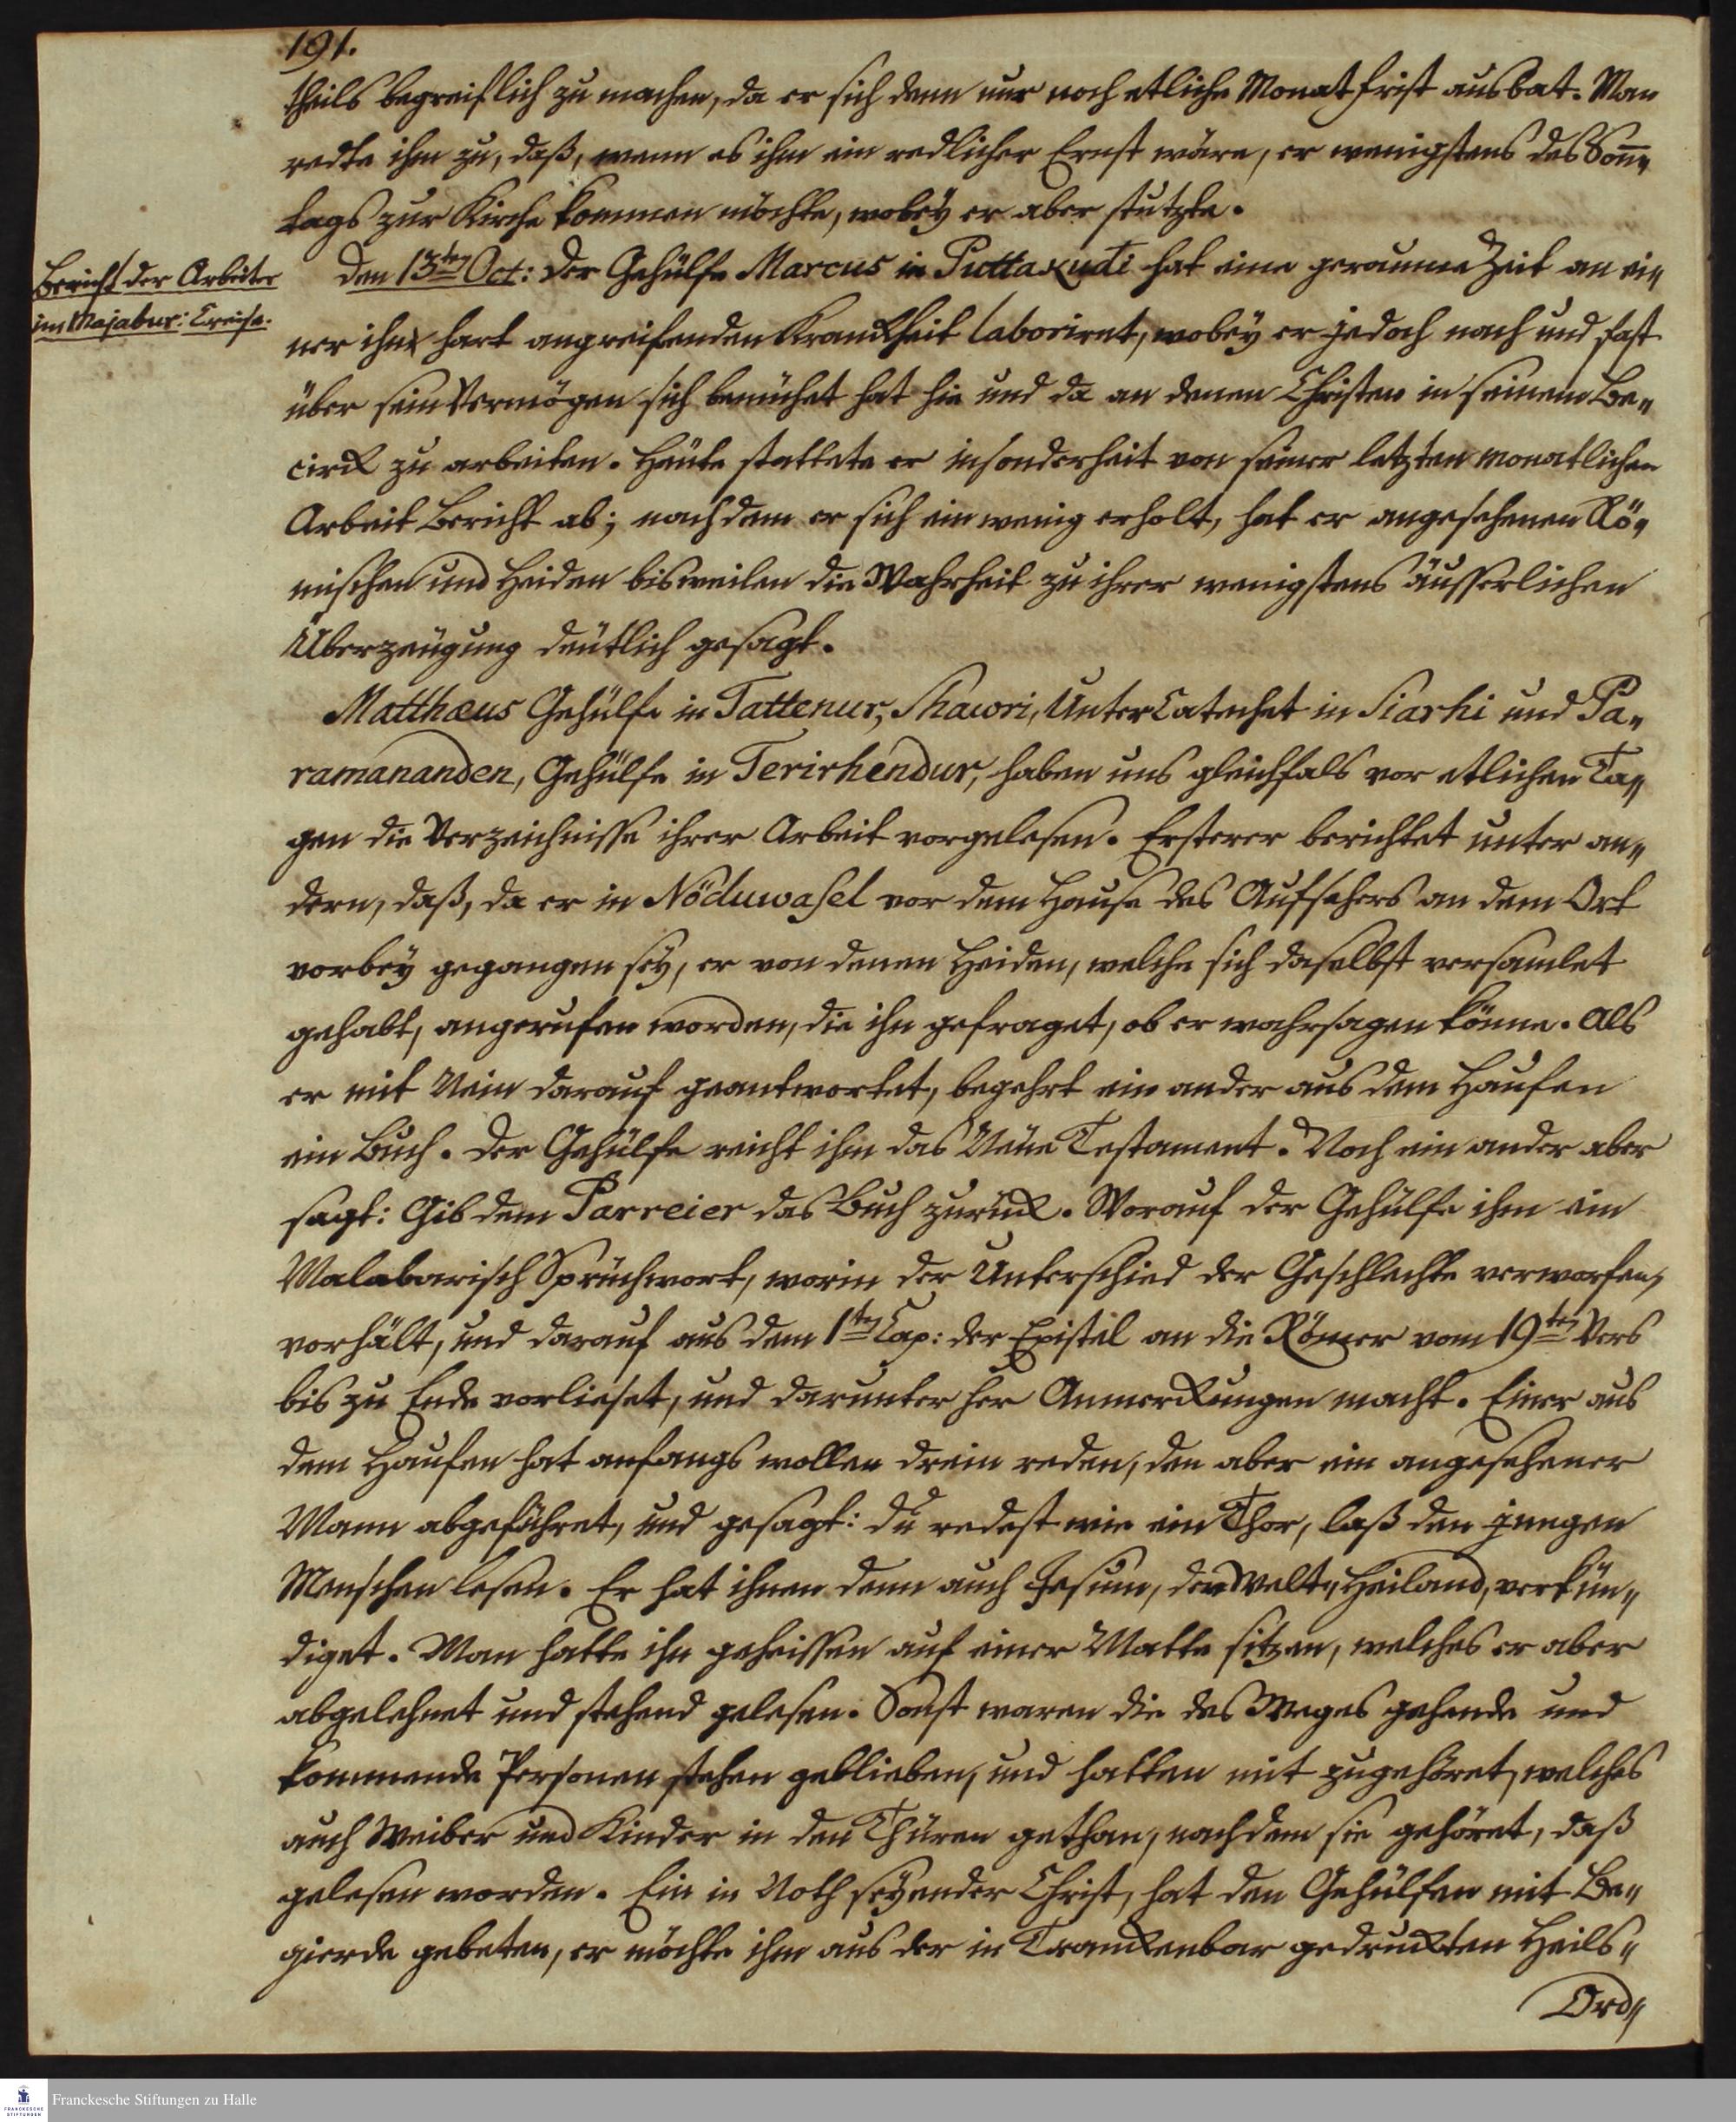 191.
theils begreiflich zu machen, da er sich denn nur noch etliche Monat frist ausbat. Man
redte ihm zu, daß, wenn es ihm ein redlicher Ernst wäre, er wenigstens des Soñ„
tags zur Kirche kommen möchte, wobey er aber stutzte.
Bericht der Arbeiter
im Majabur: Creise.
Den 13ten Oct: Der Gehülfe Marcus in Puttaκudi hat eine geraume Zeit an ei„
ner ihn hart angreifenden Kranckheit laboriret, wobey er jedoch nach und fast
über sein Vermögen sich bemühet hat hie und da an denen Christen in seinem Be„
circk zu arbeiten. Heute stattete er insonderheit von seiner letzten monatlichen
Arbeit Bericht ab; nachdem er sich ein wenig erholt, hat er angesehenen Rö„
mischen und Heiden bisweilen die Wahrheit zu ihrer wenigstens äusserlichen
Überzeugung deutlich gesagt.
Matthæus Gehülfe in Tattenur, Shawri, UnterCatechet in Siarhi und Pa„
ramananden, Gehülfe in Terirhendur, haben uns gleichfals vor etlichen Ta„
gen die Verzeichnisse ihrer Arbeit vorgelesen. Ersterer berichtet unter an„
dern, daß, da er in Nöduwasel vor dem Hause des Aufsehers an dem Ort
vorbey gegangen sey, er von denen Heiden, welche sich daselbst versamlet
gehabt, angerufen worden, die ihn gefraget, ob er wahrsagen könne. Als
er mit Nein darauf geantwortet, begehrt ein ander aus dem Haufen
ein Buch. Der Gehülfe reicht ihm das Neue Testament. Noch ein ander aber
sagt: Gib dem Parreier das Buch zurück. Worauf der Gehülfe ihm ein
Malabarisch Sprüchwort, worin der Unterschied der Geschlechte verworfen,
vorhält, und darauf aus dem 1ten Cap: der Epistel an die Römer vom 19ten Vers
bis zu Ende vorlieset, und darunter her Anmerckungen macht. Einer aus
dem Haufen hat anfangs wollen drein reden, den aber ein angesehener
Mann abgeführet, und gesagt: du redest wie ein Thor, laß den jungen
Menschen lesen. Er hat ihnen denn auch Jesum, der Welt„Heiland, verkün„
diget. Man hatte ihn geheissen auf einer Matte sitzen, welches er aber
abgelehnet und stehend gelesen. Sonst waren die des Weges gehende und
kommende Personen stehen geblieben, und hatten mit zugehöret, welches
auch Weiber und Kinder in den Thüren gethan, nachdem sie gehöret, daß
gelesen worden. Ein in Noth seyender Christ, hat den Gehülfen mit Be„
gierde gebeten, er möchte ihm aus der in Tranckenbar gedruckten Heils„
Ord„
Franckesche Stiftungen zu Halle